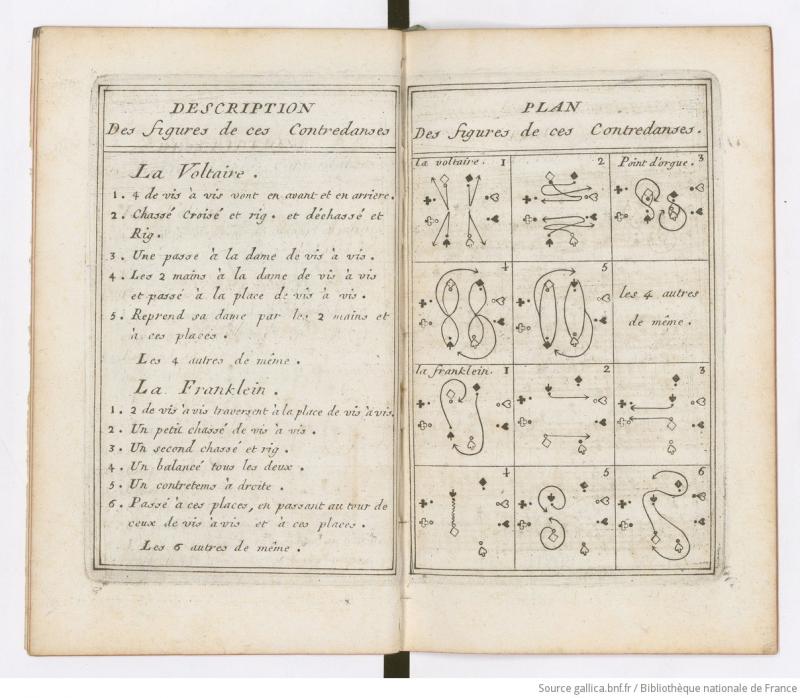 DESCRIPTION
Des figures de ces Contredanses
La Voltaire.
1. 4 de vis à vis vont en avant et en arriere.
2. Chassé Croisé et rig. et déchassé et
Rig.
3. Une passe à la dame de vis à vis.
4. Les 2 mains à la dame de vis à vis
et passé à la place de vis à vis.
5. Reprend sa dame par les 2 mains et
à ces places.
Les 4 autres de même.
La Franklein.
1. 2 de vis à vis traversent à la place de vis à vis.
2. Un petit chassé de vis à vis.
3. Un second chassé et rig.
4. Un balancé tous les deux.
5. Un contretems à droite.
6. Passé à ces places, en passant au tour de
ceux de vis à vis et à ces places.
Les 6 autres de même.
PLAN
Des figures de ces Contredanses.
la voltaire. 1
2
Point d'orgue. 3
4
5
les 4 autres
de même.
la franklein. 1
2
3
4
5
6
Source gallica.bnf.fr / Bibliothèque nationale de France